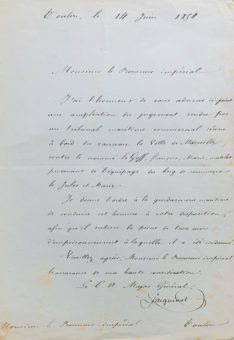 Toulon, le 14 Juin 1858
Monsieur le Procureur impérial
J'ai l'honneur de vous adresser ci-joint
une ampliation du jugement rendu par
un tribunal maritime commercial réuni
à bord du vaisseau la Ville de Marseille
contre le nommé le Goff, françois, Marie, matelot
provenant de l'équipage du brig de commerce
le Jules et Marie.
Je donne l'ordre à la gendarmerie maritime
de conduire cet homme à votre disposition,
afin qu'il subisse la peine de trois mois
d'emprisonnement à laquelle il a été condamné
Veuillez agréer, Monsieur le Procureur impérial,
l'assurance de ma haute considération.
Le C. A. Major Général,
Jacquinot
Monsieur le Procureur impérial Toulon